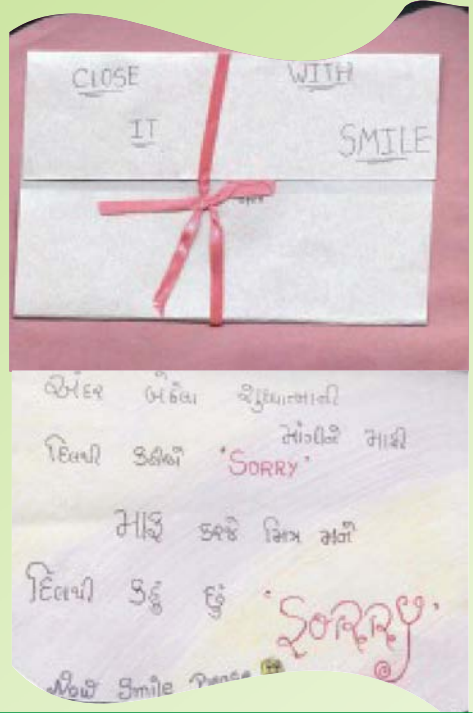 CLOSE WITH
IT SMILE
અંદર બેઠેલા શુદ્ધાત્માની
માંગીને માફી
દિલથી કહીએ 'SORRY'
માફ કરજે મિત્ર મને
દિલથી કહું છું 'SORRY'
Now Smile Please